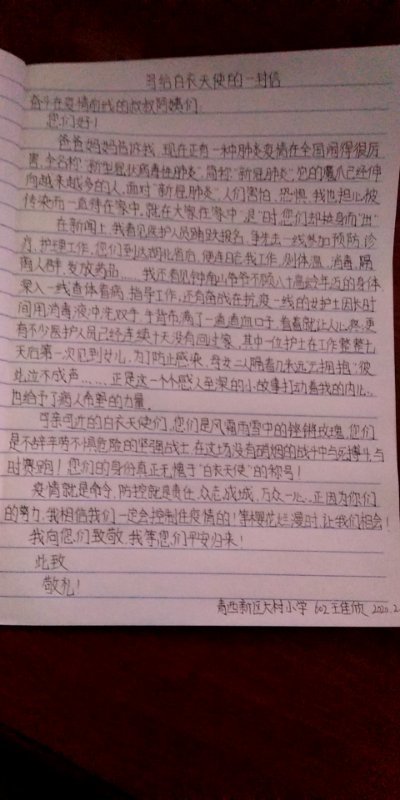 写给白衣天使的一封信
奋斗在疫情前线的叔叔阿姨们:
您们好!
爸爸妈妈告诉我,现在正有一种肺炎疫情在全国闹得很厉
害,全名称"新型冠状病毒性肺炎",简称"新冠肺炎",它的魔爪已经伸
向越来越多的人,面对"新冠肺炎",人们害怕、恐惧,我也担心被
传染而一直待在家中,就在大家在家中"退"时,您们却挺身而"出"
在新闻上,我看见医护人员踊跃报名,争先去一线参加预防、诊
疗、护理工作,您们到达湖北省后,便连日 工作,测体温、消毒、隔
离人群、发放药品……我还看见钟南山爷爷不顾八十高龄年迈的身体,
深入一线查体看病,指导工作,还有奋战在抗疫一线的女护士因长时
间用消毒液冲洗双手,手背布满了一道道血口子,看着就让人心疼,更
有不少医护人员已经连续十天没有回过家,其中一位护士在工作整整七
天后第一次见到女儿,为了防止感染,母女二人隔着几米远去拥抱"彼
此泣不成声……,正是这一个个感人至深的小故事打动着我的内心,
也给予了病人希望的力量。
可亲可近的白衣天使们,您们是风霜雨雪中的铿锵玫瑰,您们
是不辞辛劳不惧危险的坚强战士,在这场没有硝烟的战斗中与死搏斗与
时赛跑!您们的身份真正无愧于"白衣天使"的称号!
疫情就是命令,防控就是责任,众志成城,万众一心,正因为你们
的努力,我相信我们一定会控制住疫情的!等樱花烂漫时,让我们相会!
我向您们致敬,我等您们平安归来!
此致
敬礼!
青西新区大村小学 602 王佳欣 2020.2